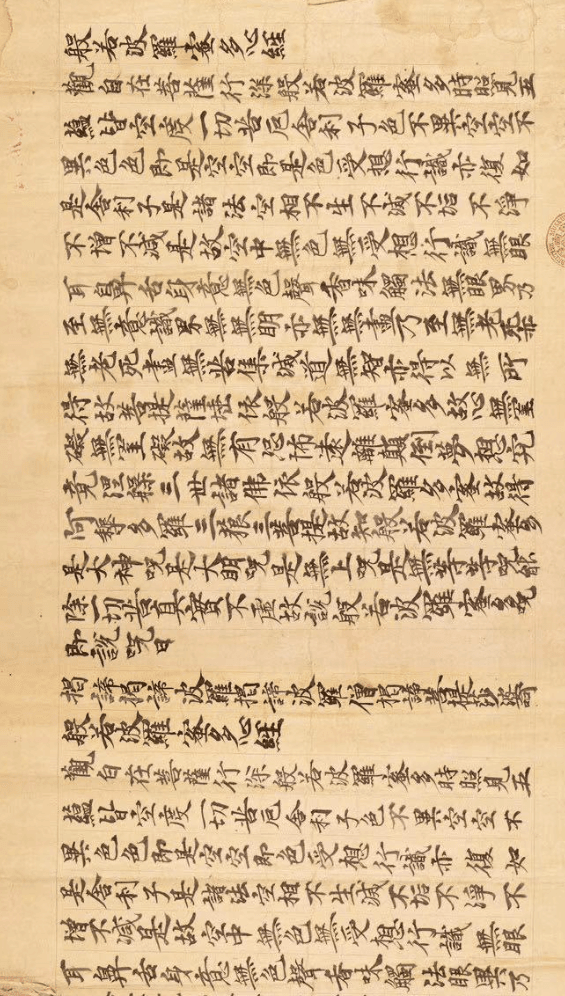 般若波羅蜜多心經
觀自在菩薩行深般若波羅蜜多時照見五
蘊皆空度一切苦厄舍利子色不異空空不
異色色即是空空即是色受想行識亦復如
是舍利子是諸法空相不生不滅不垢不淨
不增不減是故空中無色無受想行識無眼
耳鼻舌身意無色聲香味觸法無眼界乃
至無意識界無無明亦無無盡乃至無老死亦
無老死盡無苦集滅道無智亦得以無所
得故菩提薩埵依般若波羅蜜多故心無罣
礙無罣礙故無有恐怖遠離顛倒夢想究
竟涅槃三世諸佛依般若波羅多蜜故得
阿耨多羅三藐三菩提故知般若波羅蜜多
是大神呪是大明呪是無上呪是無等等呪能
除一切苦真實不虛故說般若波羅蜜多呪
即說呪曰
揭諦揭諦波羅揭諦波羅僧揭諦菩提莎婆訶
般若波羅蜜多心經
觀自在菩薩行深般若波羅蜜多時照見五
蘊皆空度一切苦厄舍利子色不異空空不
異色色即是空空即色受想行識亦復如
是舍利子是諸法空相不生滅不垢不淨不
增不減是故空中無色無受想行識無眼
耳鼻舌身意無色聲香味觸法眼界乃